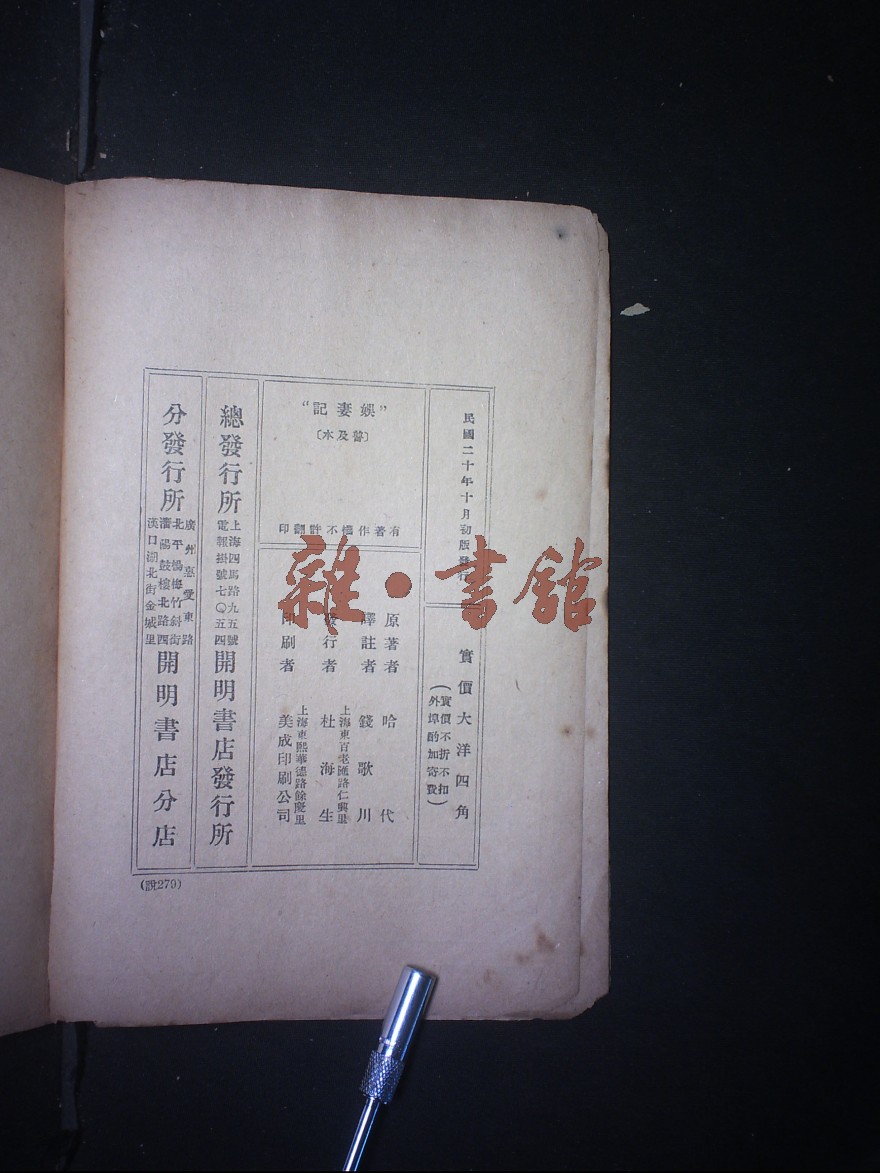 民國二十年十月初版發行
實價大洋四角
(實價不折不扣
外埠酌加寄費)
“娛妻記”
〔普及本〕
有著作權不許翻印
原著者 哈代
譯註者 錢歌川
發行者 上海東百老匯路仁興里 杜海生
印刷者 上海東熙華德路餘慶里 美成印刷公司
總發行所 上海四馬路九五號 電報掛號七〇五四 開明書店發行所
分發行所 廣州惠愛東路 北平楊梅竹斜街 瀋陽鼓樓北路西 漢口湖北街金城里 開明書店分店
(說279)
雜·書館